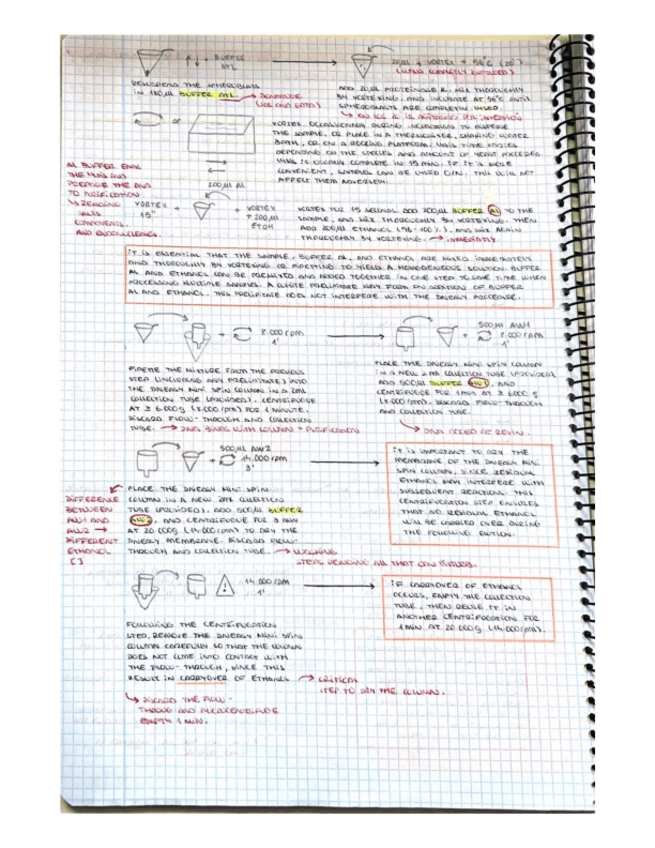 ↑ ↓ + BUFFER ATL
20 µl + VORTEX + 56°C (20')
(UNTIL COMPLETELY DIGESTED)
RESUSPEND THE SPHEROPLASTS
IN 180 µl BUFFER ATL. → DENATURE
(SDS AND EDTA)
ADD 20 µl PROTEINASE K. MIX THOROUGHLY
BY VORTEXING, AND INCUBATE AT 56°C UNTIL
SPHEROPLASTS ARE COMPLETELY LYSED.
or
VORTEX OCCASIONALLY DURING INCUBATION TO DISPERSE
THE SAMPLE, OR PLACE IN A THERMOMIXER, SHAKING WATER
BATH, OR ON A ROCKING PLATFORM. LYSIS TIME VARIES
DEPENDING ON THE SPECIES AND AMOUNT OF YEAST PROCESSED.
LYSIS IS USUALLY COMPLETE IN 15 MIN. IF IT IS MORE
CONVENIENT, SAMPLES CAN BE LYSED O/N. THIS WILL NOT
AFFECT THEM ADVERSELY.
AL BUFFER
THE LYSIS AND
PREPARE THE DNA
TO PURIFICATION
→ REMOVING
COMPONENTS,
AND
VORTEX
15"
200 µl AL
+ VORTEX
+ 200 µl
EtOH
VORTEX FOR 15 SECONDS. ADD 200 µl BUFFER AL TO THE
SAMPLE, AND MIX THOROUGHLY BY VORTEXING. THEN
ADD 200 µl ETHANOL (96-100%), AND MIX AGAIN
THOROUGHLY BY VORTEXING. → IMMEDIATELY
IT IS ESSENTIAL THAT THE SAMPLE, BUFFER AL, AND ETHANOL ARE MIXED IMMEDIATELY
AND THOROUGHLY BY VORTEXING OR PIPETTING TO YIELD A HOMOGENEOUS SOLUTION. BUFFER
AL AND ETHANOL CAN BE PREMIXED AND ADDED TOGETHER IN ONE STEP TO SAVE TIME WHEN
PROCESSING MULTIPLE SAMPLES. A WHITE PRECIPITATE MAY FORM ON ADDITION OF BUFFER
AL AND ETHANOL. THIS PRECIPITATE DOES NOT INTERFERE WITH THE DNEASY PROCEDURE.
+ 8.000 rpm
1'
500 µl AW1
+ 8.000 rpm
1'
PIPETTE THE MIXTURE FROM THE PREVIOUS
STEP (INCLUDING ANY PRECIPITATE) INTO
THE DNEASY MINI SPIN COLUMN IN A 2 ML
COLLECTION TUBE (PROVIDED). CENTRIFUGE
AT ≥ 6.000 g (8.000 rpm) FOR 1 MINUTE.
DISCARD FLOW-THROUGH AND COLLECTION
TUBE. → DNA BINDS WITH COLUMN = PURIFICATION
PLACE THE DNEASY MINI SPIN COLUMN
IN A NEW 2 ML COLLECTION TUBE (PROVIDED),
ADD 500 µl BUFFER AW1, AND
CENTRIFUGE FOR 1 MIN AT ≥ 6.000 g
(8.000 rpm). DISCARD FLOW-THROUGH
AND COLLECTION TUBE.
500 µl AW2
+ 14.000 rpm
3'
DIFFERENCE
BETWEEN
AW1 AND
AW2 →
DIFFERENT
ETHANOL
[ ]
PLACE THE DNEASY MINI SPIN
COLUMN IN A NEW 2 ML COLLECTION
TUBE (PROVIDED), ADD 500 µl BUFFER
AW2, AND CENTRIFUGE FOR 3 MIN
AT 20.000 g (14.000 rpm) TO DRY THE
DNEASY MEMBRANE. DISCARD FLOW-
THROUGH AND COLLECTION TUBE. → WASHING
IT IS IMPORTANT TO DRY THE
MEMBRANE OF THE DNEASY MINI
SPIN COLUMN, SINCE RESIDUAL
ETHANOL MAY INTERFERE WITH
SUBSEQUENT REACTIONS. THIS
CENTRIFUGATION STEP ENSURES
THAT NO RESIDUAL ETHANOL
WILL BE CARRIED OVER DURING
THE FOLLOWING ELUTION.
14.000 rpm
1'
IF CARRYOVER OF ETHANOL
OCCURS, EMPTY THE COLLECTION
TUBE, THEN REUSE IT IN
ANOTHER CENTRIFUGATION FOR
1 MIN AT 20.000 g (14.000 rpm).
FOLLOWING THE CENTRIFUGATION
STEP, REMOVE THE DNEASY MINI SPIN
COLUMN CAREFULLY SO THAT THE COLUMN
DOES NOT COME INTO CONTACT WITH
THE FLOW-THROUGH, SINCE THIS
RESULT IN CARRYOVER OF ETHANOL → CRITICAL
STEP TO DRY THE COLUMN.
↳ DISCARD THE FLOW-
THROUGH AND
EMPTY 1 MIN.